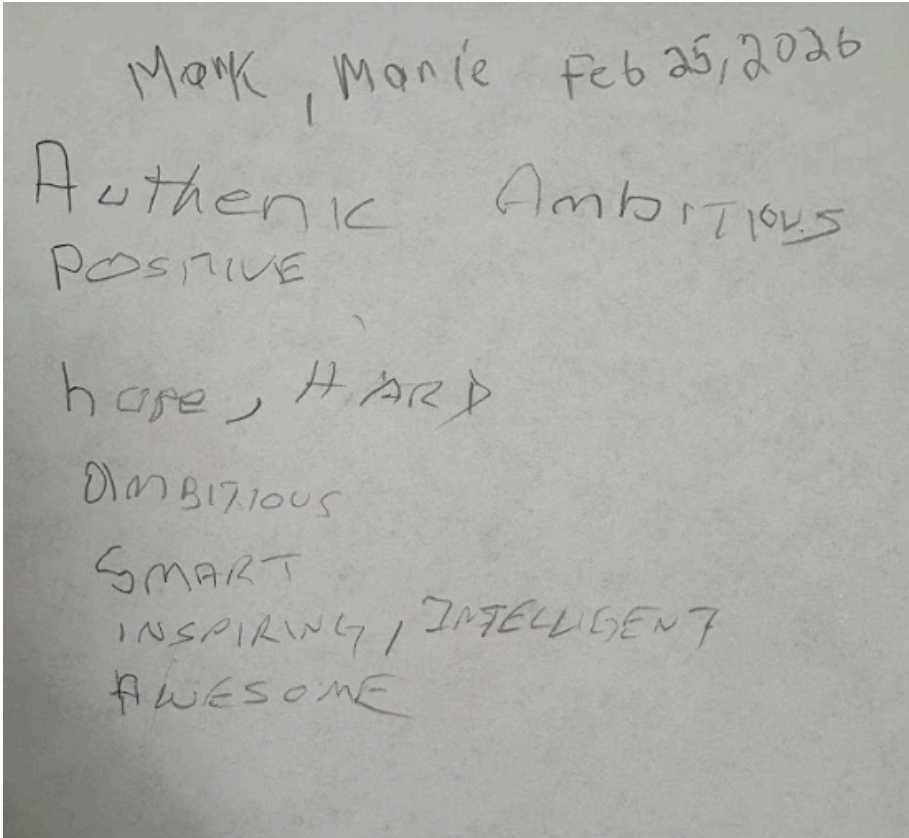 Mark, Marie Feb 25, 2026
Authenic Ambitious
POSITIVE
hope, HARD
AMBITIOUS
SMART
INSPIRING, INTELLIGENT
AWESOME